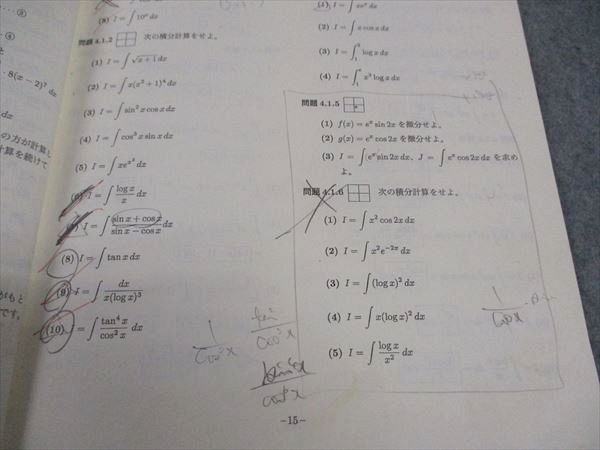 (8) I = ∫ 10ˣ dx
問題 4.1.2 次の積分計算をせよ。
(1) I = ∫ √(x+1) dx
(2) I = ∫ x(x²+1)⁴ dx
(3) I = ∫ sin² x cos x dx
(4) I = ∫ cos³ x sin x dx
(5) I = ∫ xe^{x²} dx
(6) I = ∫ (log x)/x dx
I = ∫ (sin x + cos x)/(sin x − cos x) dx
(8) I = ∫ tan x dx
(9) I = ∫ dx/(x(log x)³)
(10) I = ∫ (tan⁴ x)/(cos² x) dx
(1) I = ∫ xeˣ dx
(2) I = ∫ x cos x dx
(3) I = ∫ log x dx
(4) I = ∫ x³ log x dx
問題 4.1.5
(1) f(x) = eˣ sin 2x を微分せよ。
(2) g(x) = eˣ cos 2x を微分せよ。
(3) I = ∫ eˣ sin 2x dx、J = ∫ eˣ cos 2x dx を求め
よ。
問題 4.1.6 次の積分計算をせよ。
(1) I = ∫ x² cos 2x dx
(2) I = ∫ x²e^{−2x} dx
(3) I = ∫ (log x)² dx
(4) I = ∫ x(log x)² dx
(5) I = ∫ (log x)/x² dx
−15−
④
8(x − 2)² dx
の方が計算し
計算を続けて
がもと
です。
1/cos²x